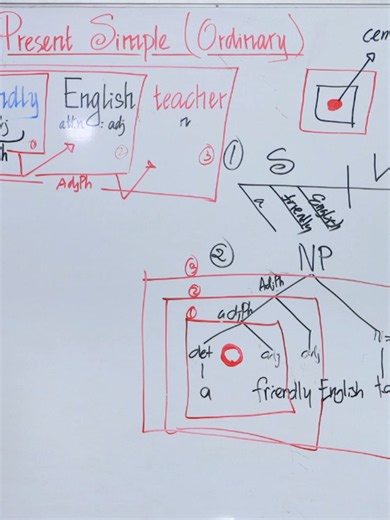 Present Simple (Ordinary)
cen
ndly English teacher
adj attn: adj n
① ② ③
AdjPh
① S V
a friendly English
② NP
③
② AdjPh
① adjPh
det adj adj n
a friendly English te